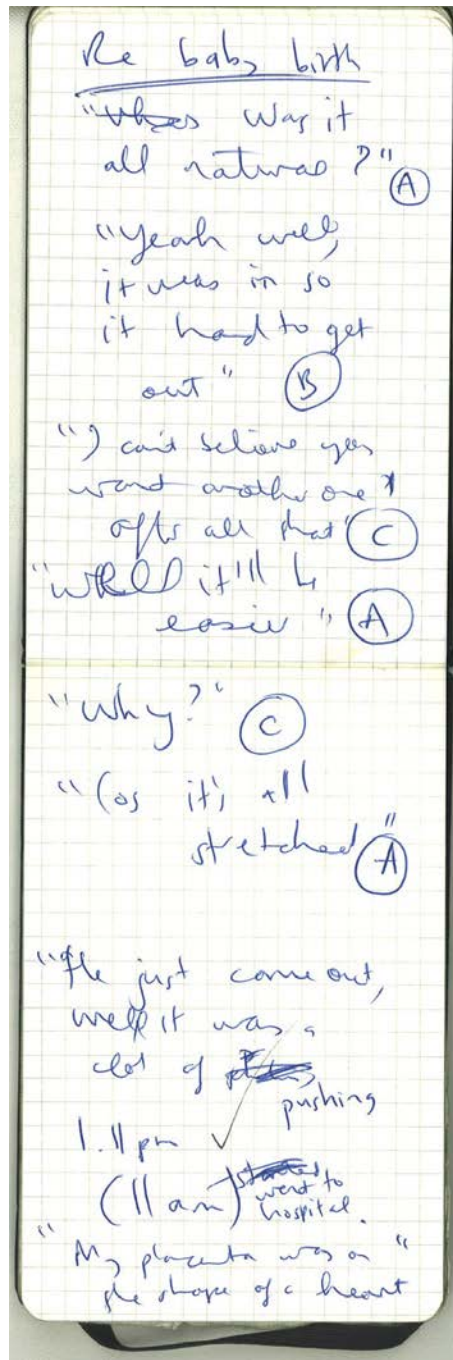 Re baby birth
"Was it
all natural?" A
"Yeah well,
it was in so
it had to get
out" B
"I can't believe you
want another one
after all that" C
"Well it'll be
easier" A
"Why?" C
"Cos it's all
stretched" A
"He just came out,
well it was a
lot of
pushing
1.11 pm
(11 am) went to
hospital.
"My placenta was in "
the shape of a heart